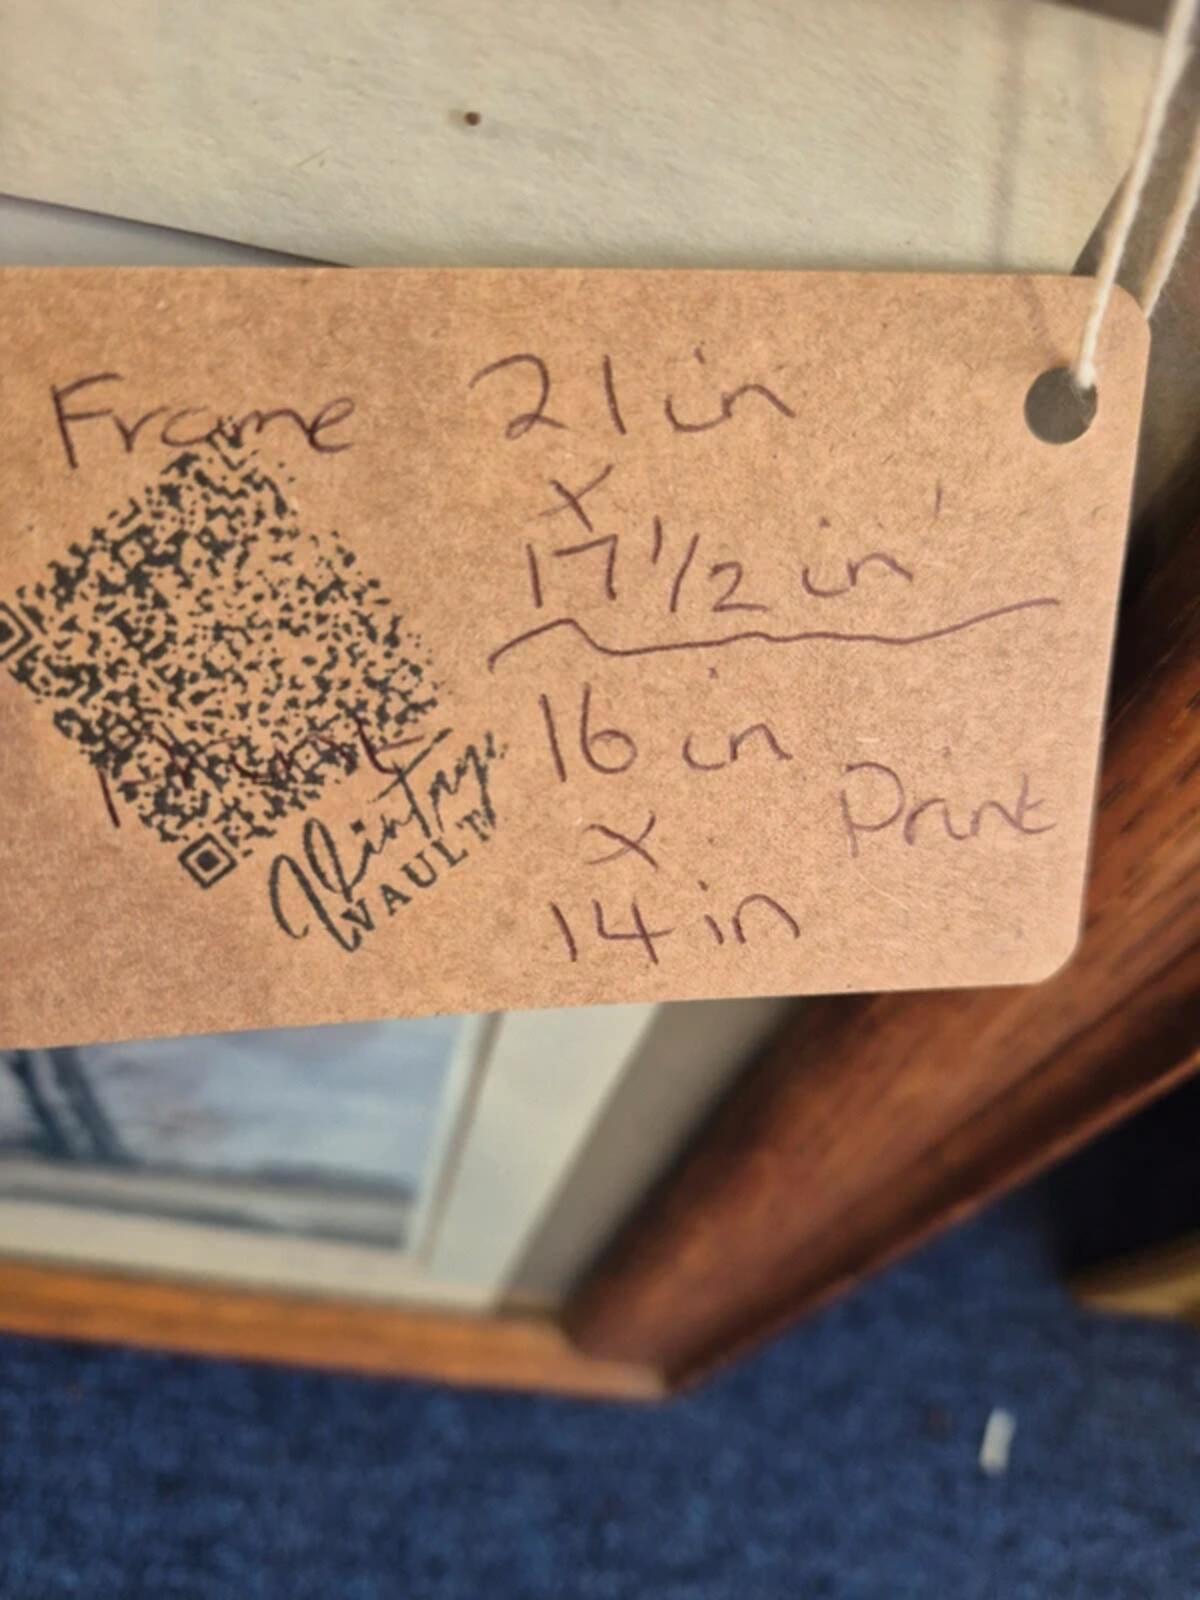 Frame 21 in
x
17 1/2 in
16 in
Print
x
14 in
Vintage
VAULT